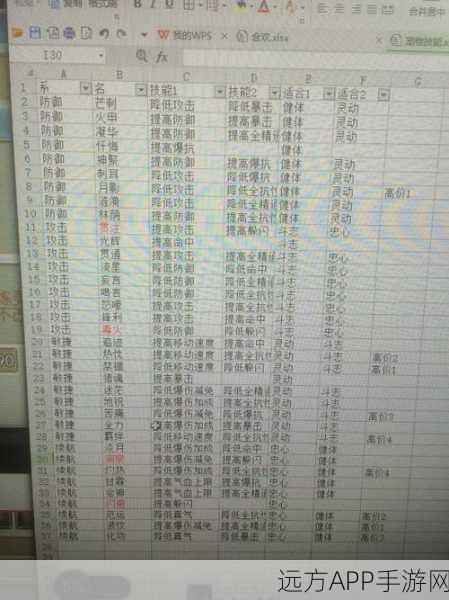 复制 格式刷
合并居中
我的WPS
合欢.xlsx
宠物技能
I30
fx
A B C D E F G
1 系 名 技能1 技能2 适合1 适合2
2 防御 芒刺 降低攻击 降低暴击 健体 灵动
3 防御 火甲 提高防御 提高暴击 健体 灵动
4 防御 凝华 提高防御 提高全精 健体 灵动
5 防御 忏悔 提高爆抗 健体
6 防御 神聚 提高防御 提高爆抗 健体 灵动
7 防御 刺耳 降低攻击 降低爆抗 健体 灵动
8 防御 月影 降低攻击 降低全抗性 健体 灵动 高价1
9 防御 降低攻击 提高全抗性 健体 灵动
10 防御 林荫 提高防御 提高全抗性 健体 灵动
11 攻击 贯注 提高攻击 提高躲闪 斗志 忠心
12 攻击 光辉 提高命中 斗志
13 攻击 贯通 提高攻击 提高全精 斗志 忠心
14 攻击 凌星 降低防御 降低命中 斗志 忠心
15 攻击 妄言 降低防御 降低全精 斗志 忠心
16 攻击 喝言 降低防御 降低全抗性 斗志 忠心
17 攻击 提高攻击 提高全抗性 斗志 忠心
18 攻击 锋利 提高攻击 提高命中 斗志 忠心
19 攻击 毒火 降低防御 降低躲闪 斗志 忠心
20 敏捷 追迹 提高移动速度 提高命中 灵动 斗志
21 敏捷 热忱 提高移动速度 提高全抗性 灵动 斗志 高价2
22 敏捷 禁锢 降低移动速度 降低躲闪 灵动 斗志 高价1
23 敏捷 猎魂 提高暴击 灵动
24 敏捷 迷茫 降低爆伤减免 降低全精 灵动 斗志
25 敏捷 地锐 提高爆伤加成 提高全精 灵动 斗志
26 敏捷 苦痛 降低爆伤减免 降低爆抗 灵动 斗志 高价3
27 敏捷 全力 提高爆伤加成 提高暴击 灵动 斗志
28 敏捷 羁绊 降低移动速度 降低全抗性 灵动 斗志 高价4
29 续航 凉月 降低爆伤加成 降低命中 忠心 健体
30 续航 提高爆伤减免 提高躲闪 忠心 健体
31 续航 灼热 降低爆伤加成 降低全抗性 忠心 健体 高价4
32 续航 甘霖 提高气血上限 提高全抗性 忠心 健体
33 续航 提高气血上限 提高全精 忠心 健体
34 续航 提高躲闪 忠心
35 续航 厄运 降低真气 降低全抗性 忠心 健体 高价2
36 续航 提高爆伤减免 提高全精 忠心 健体 高价1
37 续航 化功 降低真气 降低暴击 忠心 健体 高价3
远方APP手游网